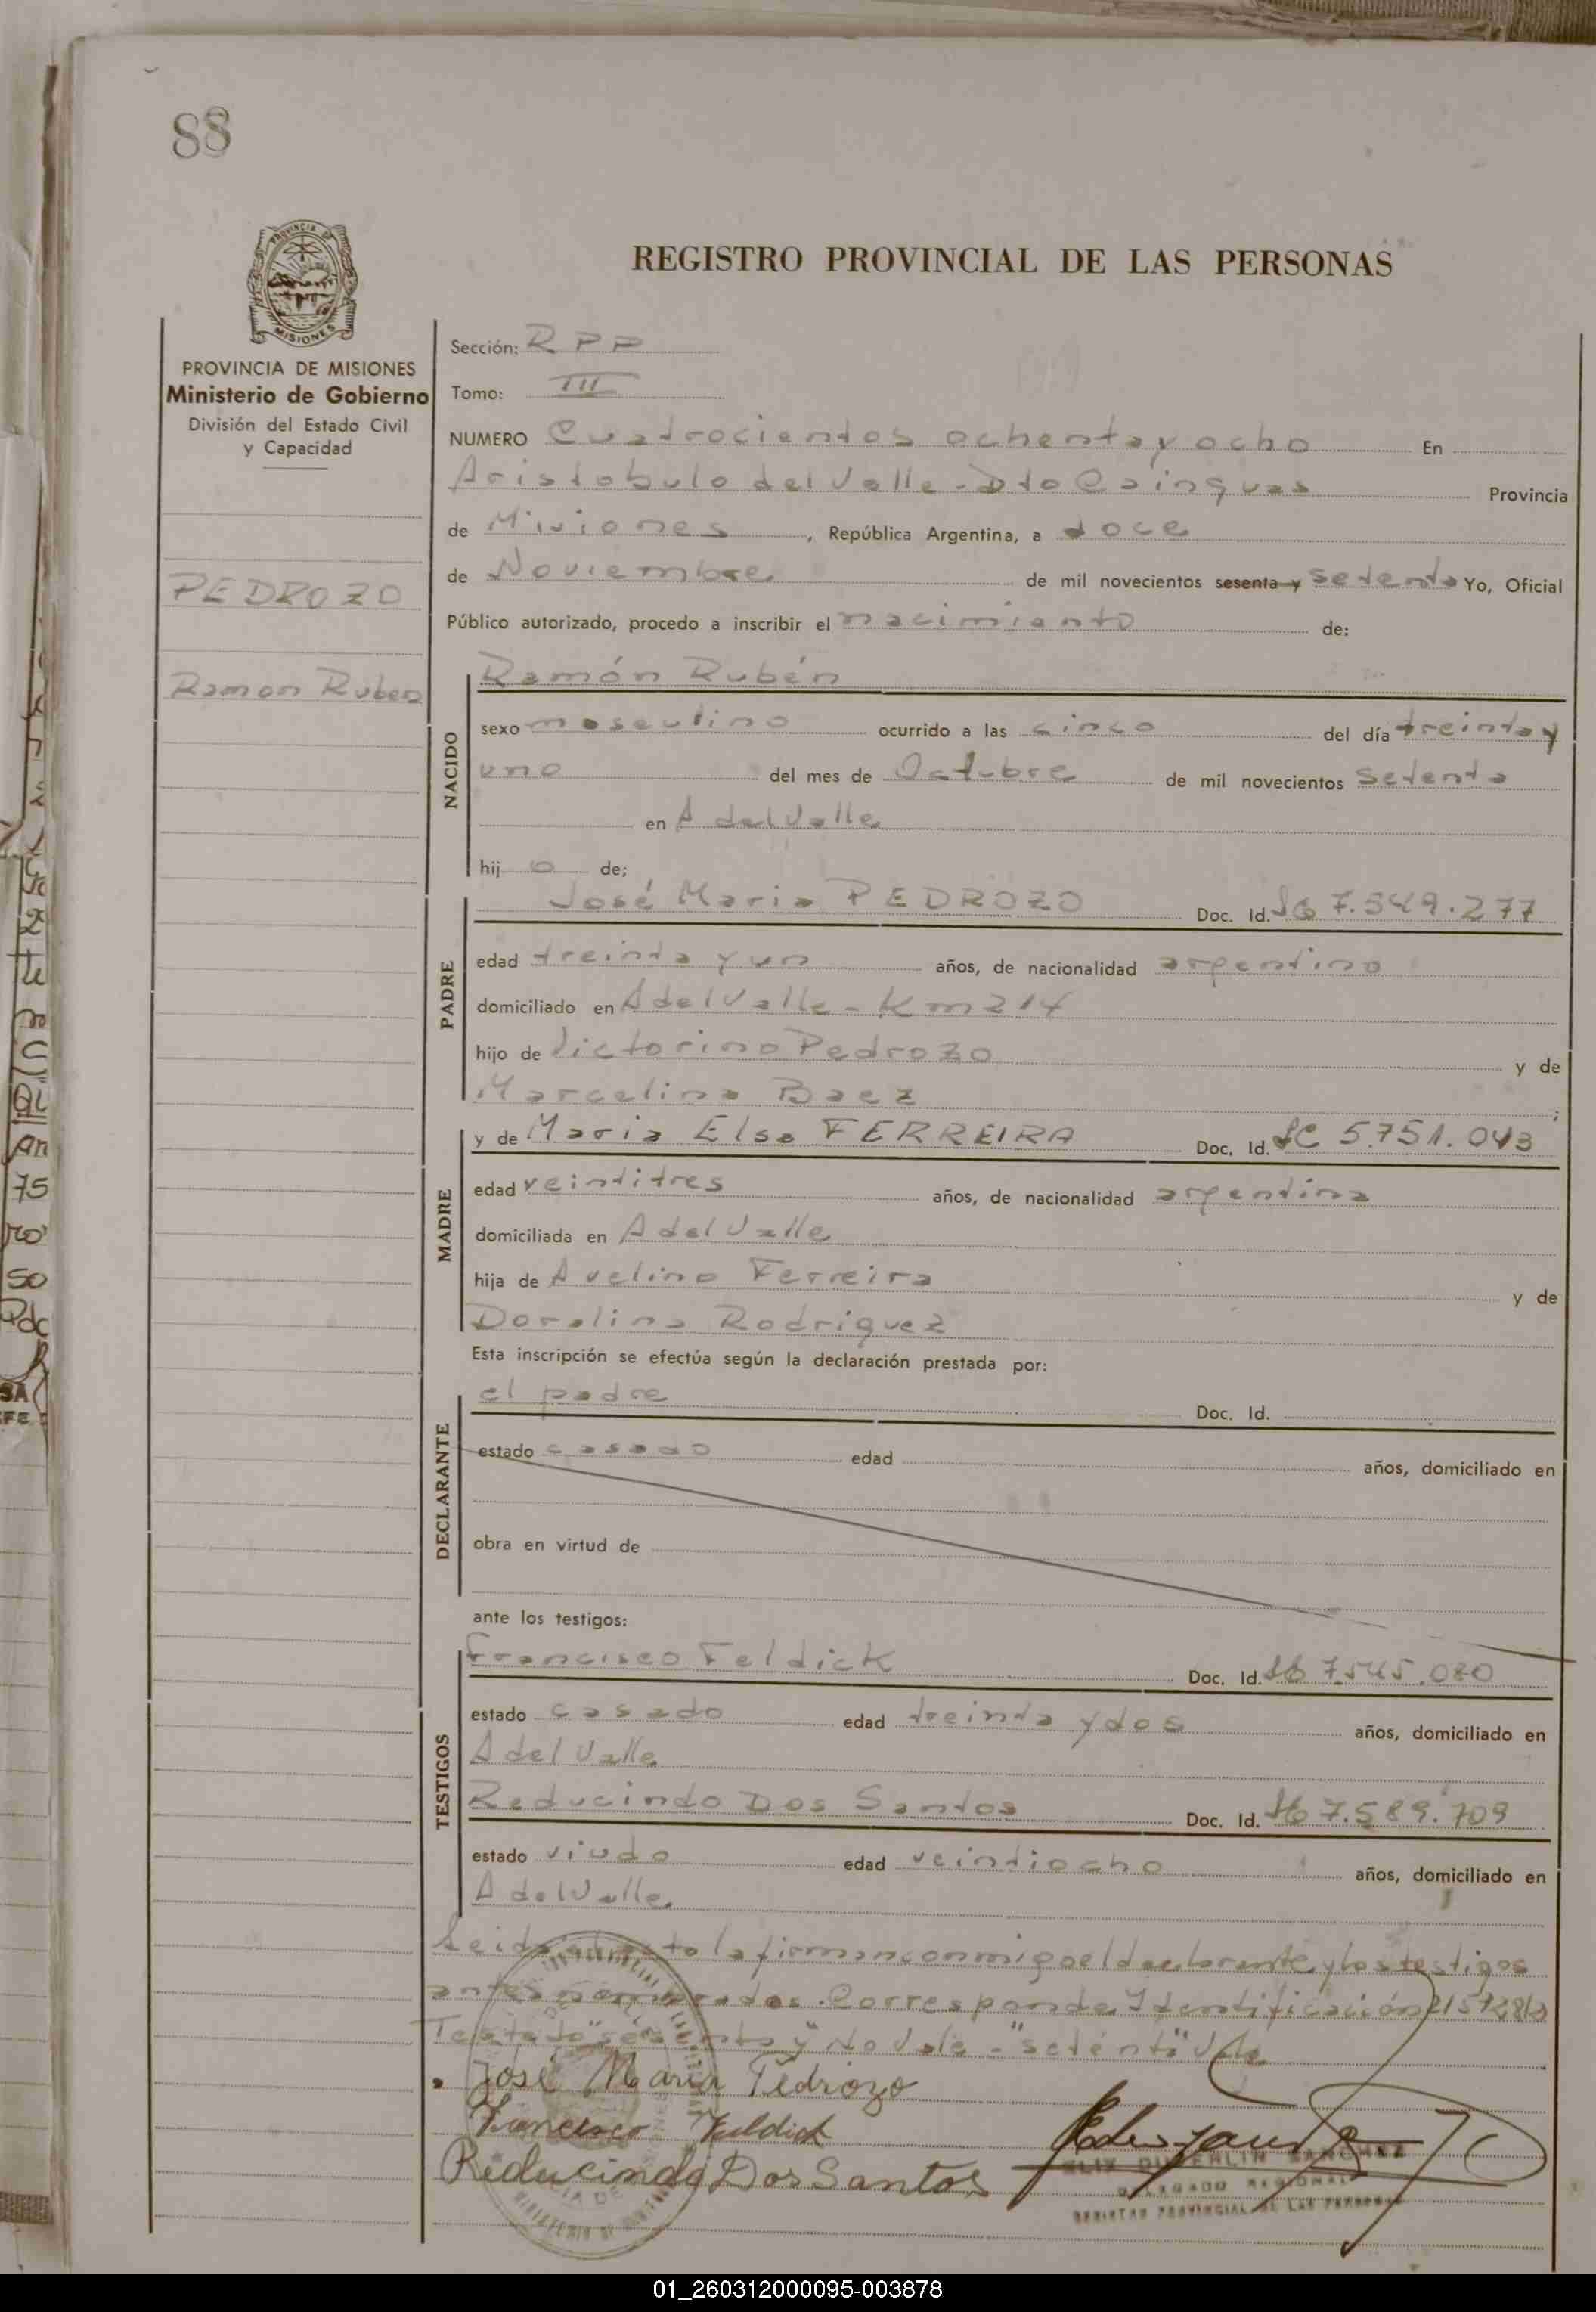 88
REGISTRO PROVINCIAL DE LAS PERSONAS
PROVINCIA DE MISIONES
Ministerio de Gobierno
División del Estado Civil
y Capacidad
PEDROZO
Ramon Ruben
Sección: RPP
Tomo: III
NUMERO Cuatrocientos ochenta y ocho En
Aristobulo del Valle - Dto Cainguas Provincia
de Misiones, República Argentina, a doce
de Noviembre de mil novecientos sesenta y setenta Yo, Oficial
Público autorizado, procedo a inscribir el nacimiento de:
NACIDO
Ramón Rubén
sexo masculino ocurrido a las cinco del día treinta y
uno del mes de Octubre de mil novecientos setenta
en A del Valle
hijo de;
PADRE
José Maria PEDROZO Doc. Id. 7.549.277
edad treinta y un años, de nacionalidad argentino
domiciliado en A del Valle - Km 214
hijo de Victorino Pedrozo y de
Marcelina Baez;
MADRE
y de Maria Elsa FERREIRA Doc. Id. LC 5.751.043
edad veintitres años, de nacionalidad argentina
domiciliada en A del Valle
hija de Avelino Ferreira y de
Doralina Rodriguez
Esta inscripción se efectúa según la declaración prestada por:
DECLARANTE
el padre Doc. Id.
estado casado edad años, domiciliado en
obra en virtud de
ante los testigos:
TESTIGOS
Francisco Feldick Doc. Id. 7.545.080
estado casado edad treinta y dos años, domiciliado en
A del Valle
Reducindo Dos Santos Doc. Id. 7.589.709
estado viudo edad veintiocho años, domiciliado en
A del Valle
Leida el acta la firman conmigo el declarante y los testigos
antes nombrados. Corresponde Identificación
Testado "sesenta y" No Vale - "setenta" Vale
José Maria Pedrozo
Francisco Feldick
Reducindo Dos Santos
SANCHEZ
DELEGADO REGIONAL
REGISTRO PROVINCIAL DE LAS PERSONAS
01_260312000095-003878